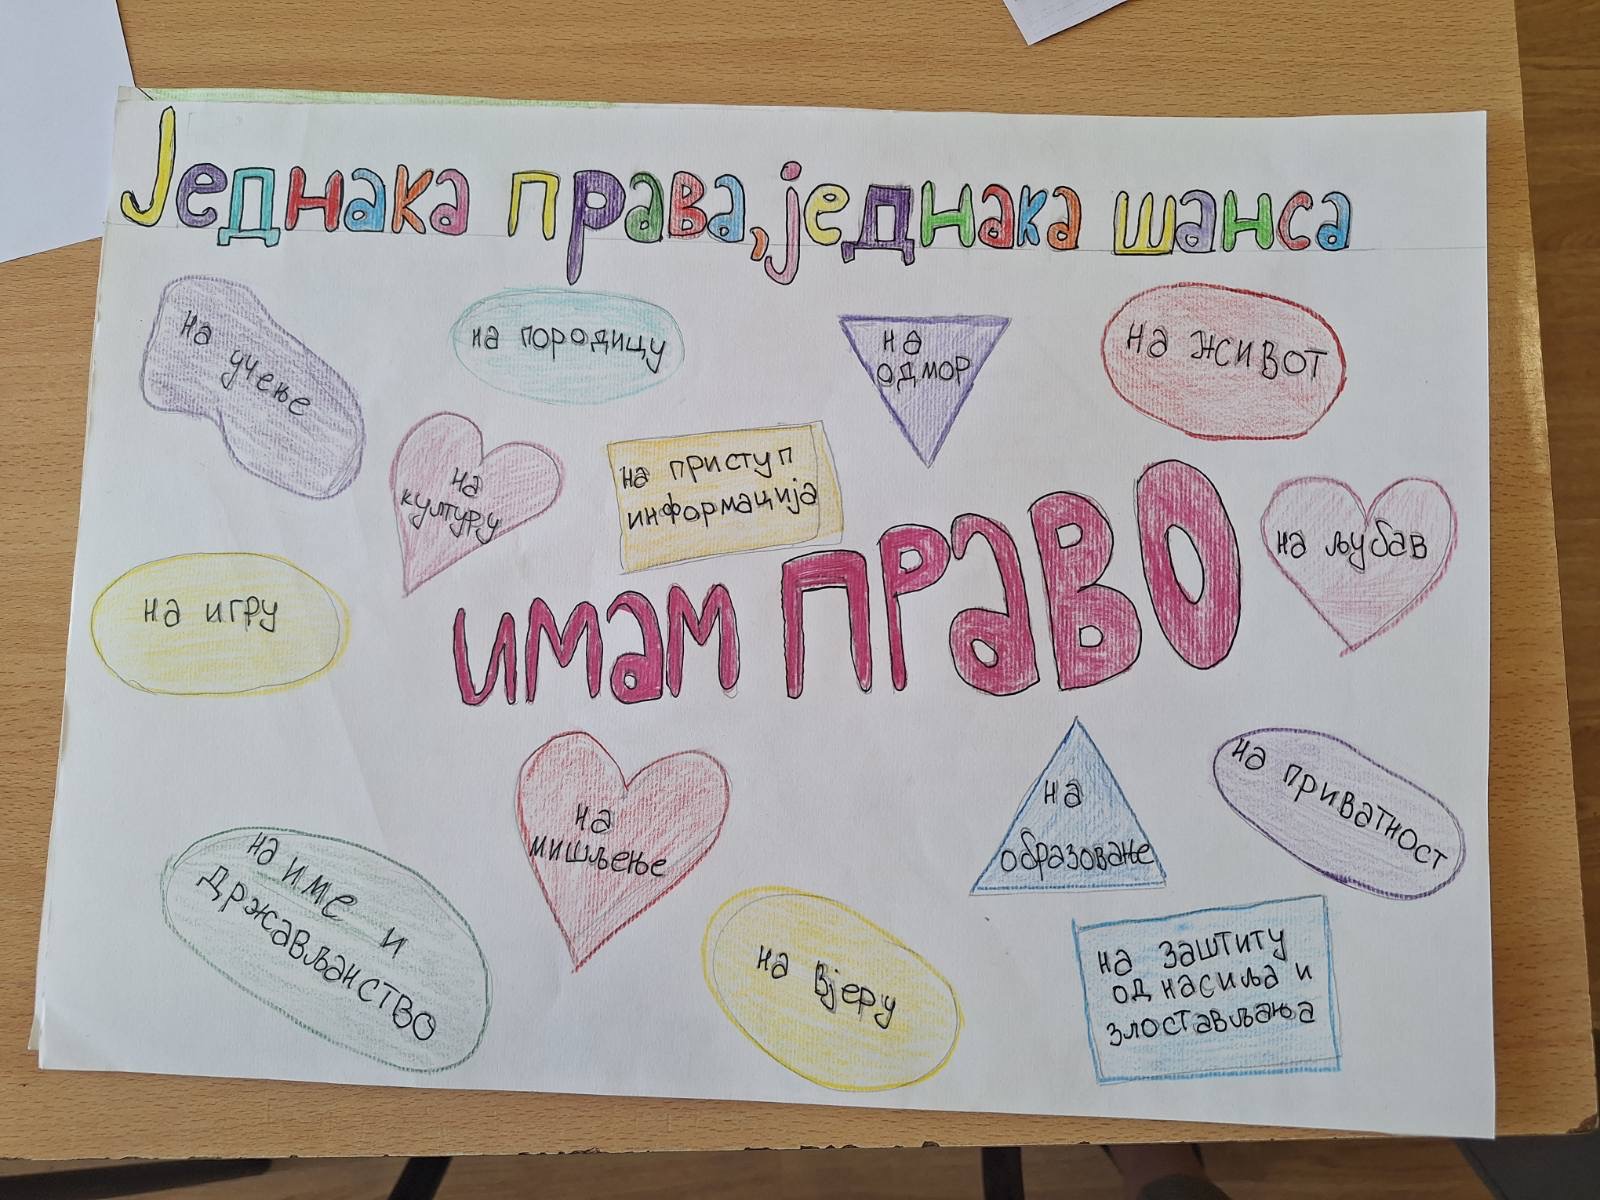 Једнака права, једнака шанса
на
учење
на породицу
на
одмор
на живот
на
културу
на приступ
информација
на љубав
на игру
имам право
на
мишљење
на
образовање
на приватност
на име и
држављанство
на вјеру
на заштиту
од насиља и
злостављања